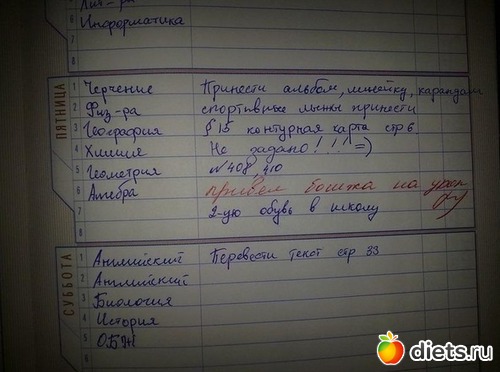 Лит-ра
6 Информатика
7
8
ПЯТНИЦА
1 Черчение Принести альбом, линейку, карандаш
2 Физ-ра спортивные лыжи принести
3 География § 15 контурная карта стр 6
4 Химия Не задано!!!! =)
5 Геометрия №408, 410
6 Алгебра привел бомжа на урок
7 2-ую обувь в школу
8
СУББОТА
1 Английский Перевести текст стр 33
2 Английский
3 Биология
4 История
5 ОБЖ
diets.ru